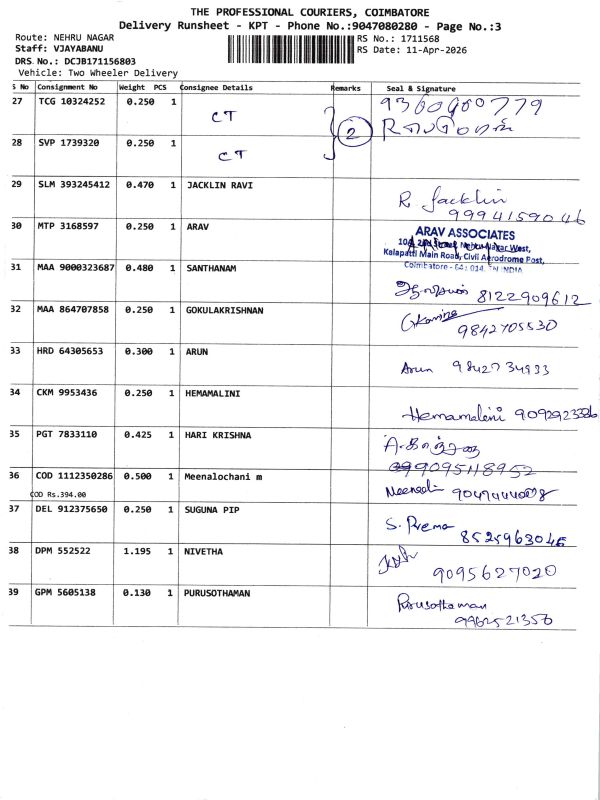 THE PROFESSIONAL COURIERS, COIMBATORE
Delivery Runsheet - KPT - Phone No.:9047080280 - Page No.:3
Route: NEHRU NAGAR
RS No.: 1711568
Staff: VJAYABANU
RS Date: 11-Apr-2026
DRS No.: DCJB171156803
Vehicle: Two Wheeler Delivery
S No Consignment No Weight PCS Consignee Details Remarks Seal & Signature
27 TCG 10324252 0.250 1 CT 9360900779
28 SVP 1739320 0.250 1 CT 2
29 SLM 393245412 0.470 1 JACKLIN RAVI R Jacklin
9994159046
30 MTP 3168597 0.250 1 ARAV ARAV ASSOCIATES
Kalapatti Main Road, Civil Aerodrome Post,
Coimbatore - 641 014. INDIA
31 MAA 9000323687 0.480 1 SANTHANAM 8122909612
32 MAA 864707858 0.250 1 GOKULAKRISHNAN 9842705530
33 HRD 64305653 0.300 1 ARUN Arun 9842734933
34 CKM 9953436 0.250 1 HEMAMALINI Hemamalini
35 PGT 7833110 0.425 1 HARI KRISHNA
9095118952
36 COD 1112350286 0.500 1 Meenalochani m
COD Rs.394.00
37 DEL 912375650 0.250 1 SUGUNA PIP S. Prema
8525963045
38 DPM 552522 1.195 1 NIVETHA 9095627020
39 GPM 5605138 0.130 1 PURUSOTHAMAN Purusothaman
9962521356